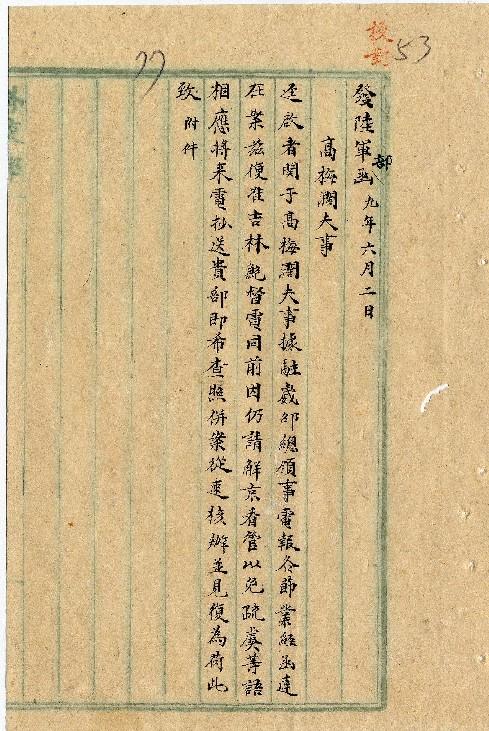 校對
53
發陸軍部函 九年六月二日
高梅濶夫事
逕啟者関于高梅濶夫事據駐崴邵總領事電報各節業經函達
在案茲復准吉林鮑督電同前因仍請解京看管以免疏虞等語
相應將來電抄送貴部即希查照併案從速核辦並見復為荷此
致 附件
77